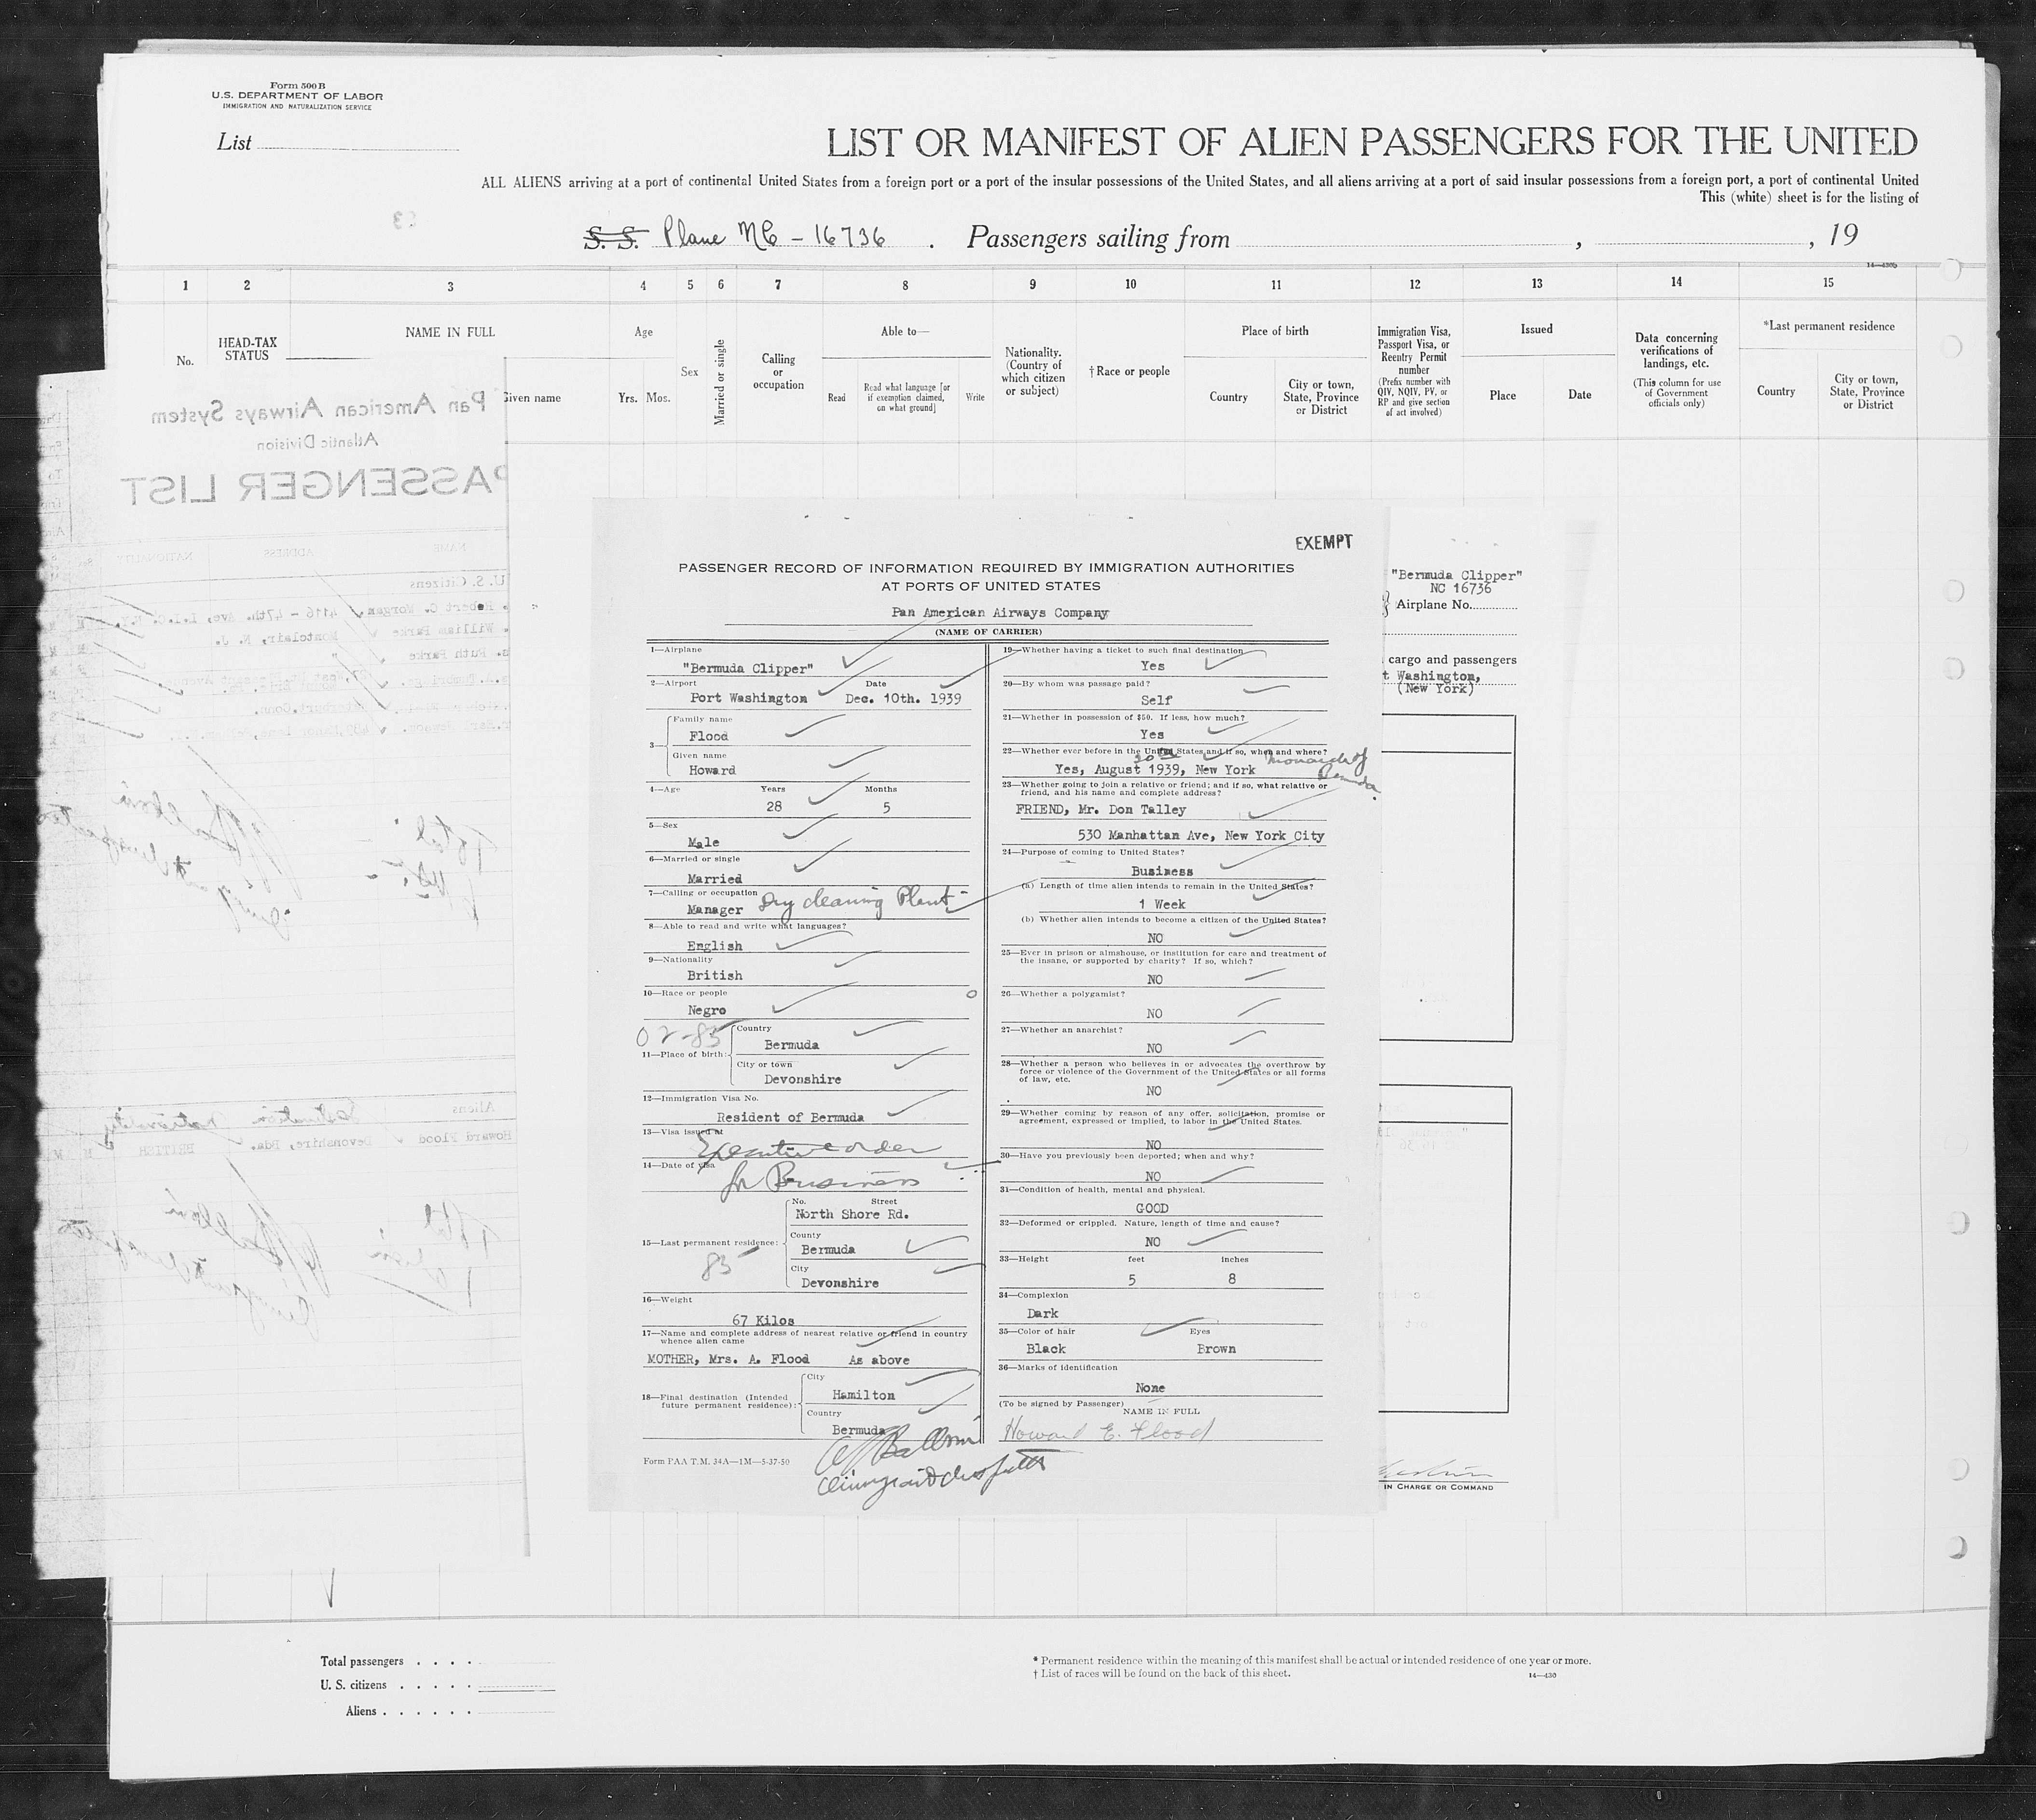 Form 500 B
U.S. DEPARTMENT OF LABOR
IMMIGRATION AND NATURALIZATION SERVICE
List
LIST OR MANIFEST OF ALIEN PASSENGERS FOR THE UNITED
ALL ALIENS arriving at a port of continental United States from a foreign port or a port of the insular possessions of the United States, and all aliens arriving at a port of said insular possessions from a foreign port, a port of continental United
This (white) sheet is for the listing of
S. S. Plane NC - 16736 . Passengers sailing from , , 19
14—430b
1 2 3 4 5 6 7 8 9 10 11 12 13 14 15
No.
HEAD-TAX
STATUS
NAME IN FULL
Given name
Age
Yrs. Mos.
Sex
Married or single
Calling
or
occupation
Able to—
Read
Read what language [or
if exemption claimed,
on what ground]
Write
Nationality.
(Country of
which citizen
or subject)
†Race or people
Place of birth
Country
City or town,
State, Province
or District
Immigration Visa,
Passport Visa, or
Reentry Permit
number
(Prefix number with
QIV, NQIV, PV, or
RP and give section
of act involved)
Issued
Place
Date
Data concerning
verifications of
landings, etc.
(This column for use
of Government
officials only)
*Last permanent residence
Country
City or town,
State, Province
or District
Pan American Airways System
Atlantic Division
PASSENGER LIST
NAME ADDRESS NATIONALITY
U.S. Citizens
Robert C. Morgan 4116 - 47th. Ave, L.I.C. N.Y.
William Parke Montclair, N. J.
Ruth Parke "
Aliens Destination Nationality
Howard Flood Devonshire, Bda. BRITISH M M
EXEMPT
PASSENGER RECORD OF INFORMATION REQUIRED BY IMMIGRATION AUTHORITIES
AT PORTS OF UNITED STATES
Pan American Airways Company
(NAME OF CARRIER)
1—Airplane
"Bermuda Clipper"
2—Airport Date
Port Washington Dec. 10th. 1939
3— Family name
Flood
Given name
Howard
4—Age Years Months
28 5
5—Sex
Male
6—Married or single
Married
7—Calling or occupation
Manager Dry cleaning Plant
8—Able to read and write what languages?
English
9—Nationality
British
10—Race or people
Negro
02-85
11—Place of birth: Country
Bermuda
City or town
Devonshire
12—Immigration Visa No.
Resident of Bermuda
13—Visa issued at
Executive order
14—Date of visa
for Business
15—Last permanent residence: No. Street
North Shore Rd.
County
Bermuda
85
City
Devonshire
16—Weight
67 Kilos
17—Name and complete address of nearest relative or friend in country
whence alien came
MOTHER, Mrs. A. Flood As above
18—Final destination (Intended
future permanent residence):
City
Hamilton
Country
Bermuda
Form PAA T.M. 34A—1M—5-37-50
19—Whether having a ticket to such final destination
Yes
20—By whom was passage paid?
Self
21—Whether in possession of $50. If less, how much?
Yes
22—Whether ever before in the United States and if so, when and where?
Yes, August 1939, New York Monarch of
Bermuda.
23—Whether going to join a relative or friend; and if so, what relative or
friend, and his name and complete address?
FRIEND, Mr. Don Talley
530 Manhattan Ave, New York City
24—Purpose of coming to United States?
Business
(a) Length of time alien intends to remain in the United States?
1 Week
(b) Whether alien intends to become a citizen of the United States?
NO
25—Ever in prison or almshouse, or institution for care and treatment of
the insane, or supported by charity? If so, which?
NO
26—Whether a polygamist?
NO
27—Whether an anarchist?
NO
28—Whether a person who believes in or advocates the overthrow by
force or violence of the Government of the United States or all forms
of law, etc.
NO
29—Whether coming by reason of any offer, solicitation, promise or
agreement, expressed or implied, to labor in the United States.
NO
30—Have you previously been deported; when and why?
NO
31—Condition of health, mental and physical.
GOOD
32—Deformed or crippled. Nature, length of time and cause?
NO
33—Height feet inches
5 8
34—Complexion
Dark
35—Color of hair Eyes
Black Brown
36—Marks of identification
None
(To be signed by Passenger)
NAME IN FULL
Howard E. Flood
"Bermuda Clipper"
NC 16736
Airplane No.
cargo and passengers
t Washington,
(New York)
IN CHARGE OR COMMAND
Total passengers
U. S. citizens
Aliens
* Permanent residence within the meaning of this manifest shall be actual or intended residence of one year or more.
† List of races will be found on the back of this sheet.
14—430